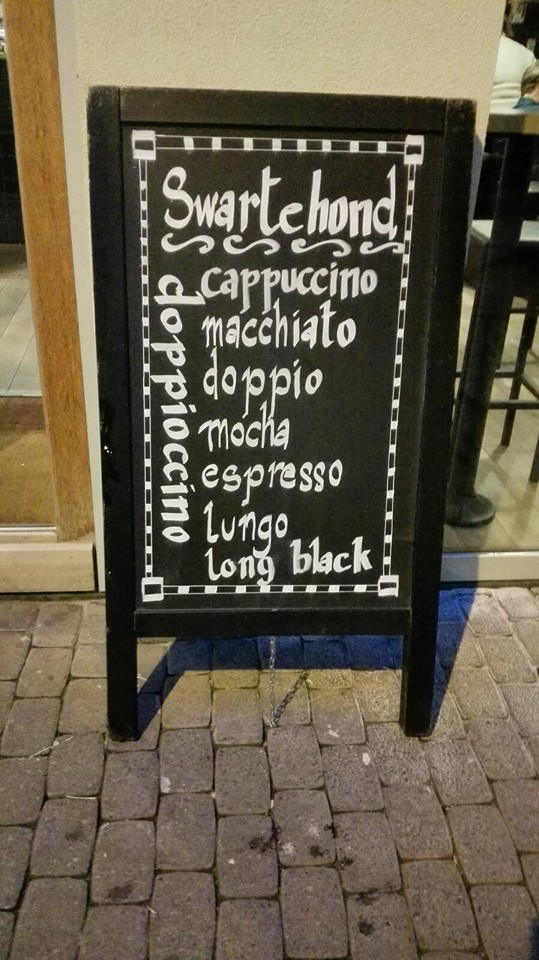 Swarte hond
cappuccino
macchiato
doppio
mocha
espresso
lungo
long black
doppioccino